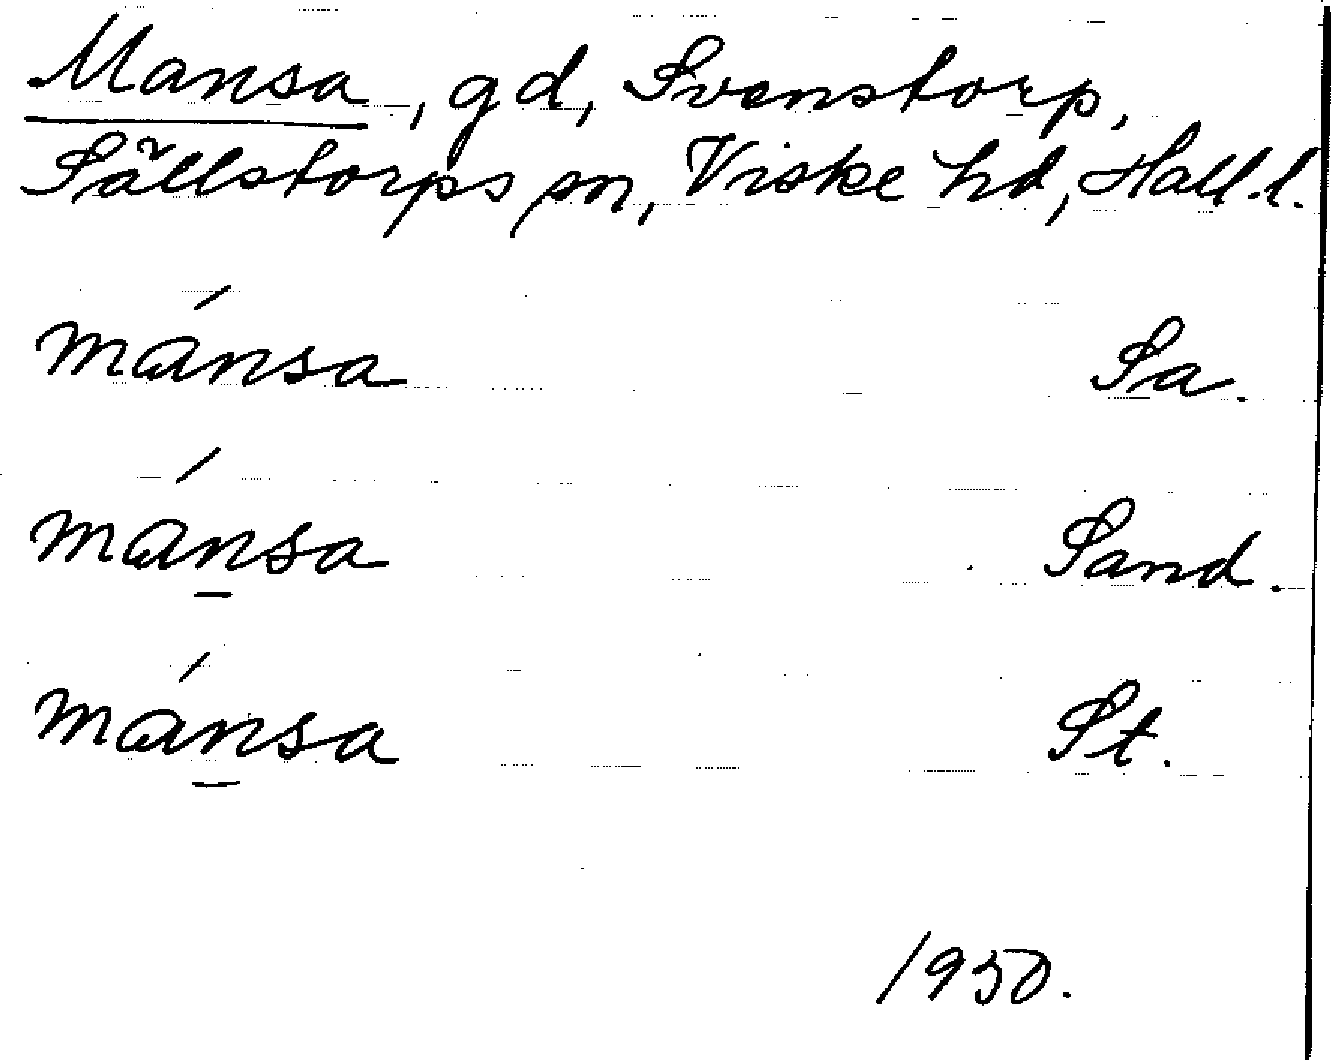 Mansa, gd, Svenstorp,
Sällstorps sn, Viske hd, Hall.l.
mánsa Sa.
mánsa Sand.
mánsa St.
1950.